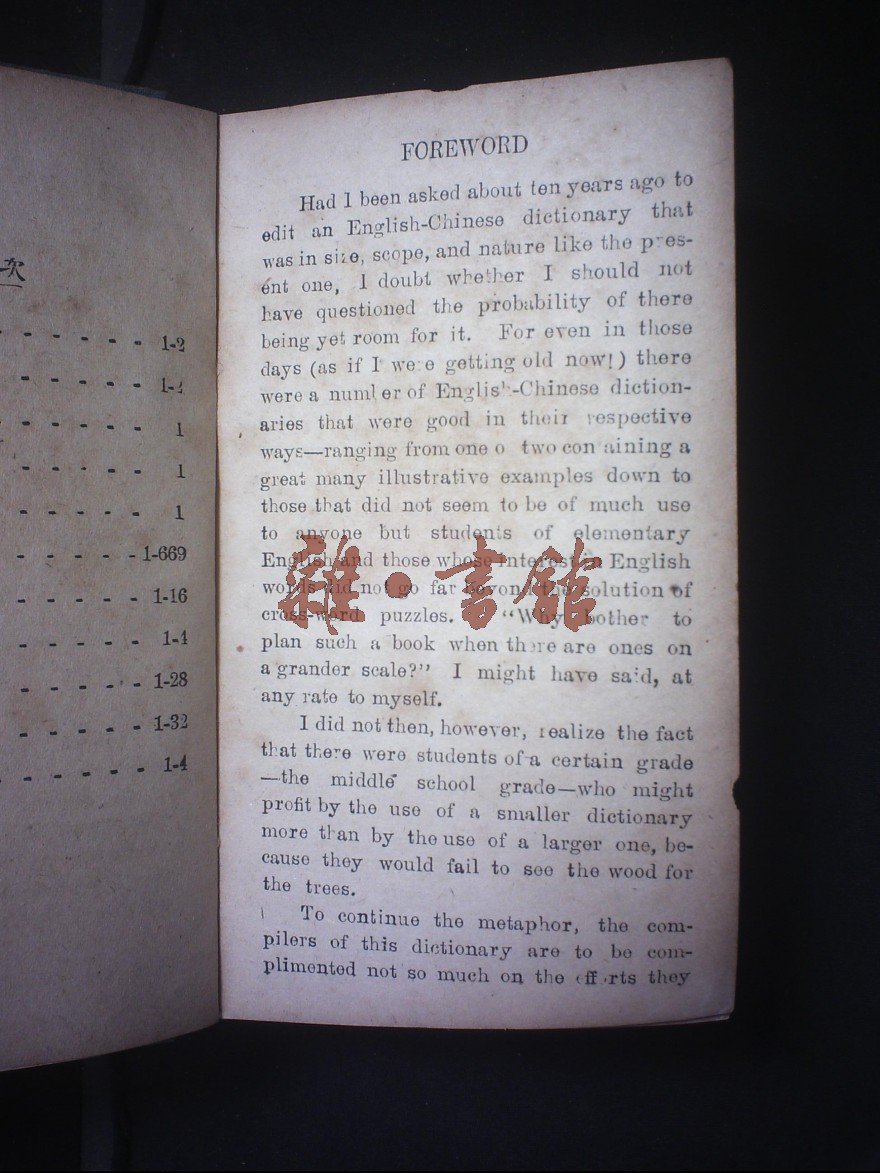 次
1-2
1-
1
1
1
1-669
1-16
1-4
1-28
1-32
1-4
FOREWORD
Had I been asked about ten years ago to
edit an English-Chinese dictionary that
was in size, scope, and nature like the pres-
ent one, I doubt whether I should not
have questioned the probability of there
being yet room for it. For even in those
days (as if I were getting old now!) there
were a number of English-Chinese diction-
aries that were good in their respective
ways—ranging from one o two containing a
great many illustrative examples down to
those that did not seem to be of much use
to anyone but students of elementary
English and those whose interest in English
words did not go far beyond the solution of
cross-word puzzles. "Why bother to
plan such a book when there are ones on
a grander scale?" I might have said, at
any rate to myself.
I did not then, however, realize the fact
that there were students of a certain grade
—the middle school grade—who might
profit by the use of a smaller dictionary
more than by the use of a larger one, be-
cause they would fail to see the wood for
the trees.
To continue the metaphor, the com-
pilers of this dictionary are to be com-
plimented not so much on the efforts they
雜·書館